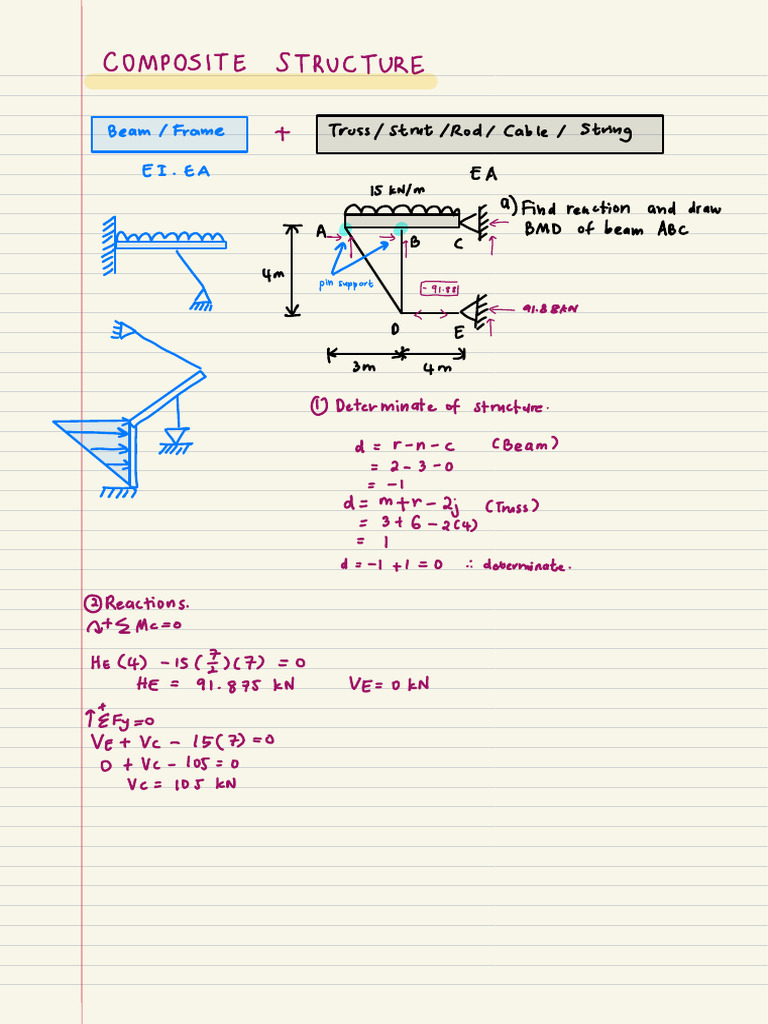 COMPOSITE STRUCTURE
Beam / Frame + Truss / Strut / Rod / Cable / String
EI. EA
EA
15 kN/m
a) Find reaction and draw
BMD of beam ABC
A
B
C
4m
pin support
- 91.88
91.88 kN
D
E
3m
4m
① Determinate of structure.
d = r - n - c (Beam)
= 2 - 3 - 0
= -1
d = m + r - 2j (Truss)
= 3 + 6 - 2(4)
= 1
d = -1 + 1 = 0 ∴ doberminate.
② Reactions.
↷+ Σ Mc = 0
HE (4) - 15 (7/2)(7) = 0
HE = 91.875 kN VE = 0 kN
↑+ ΣFy = 0
VE + Vc - 15(7) = 0
0 + Vc - 105 = 0
Vc = 105 kN